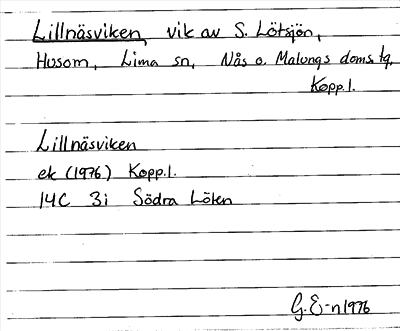 Lillnäsviken, vik av S. Lötsjön,
Husom, Lima sn, Nås o. Malungs doms. tg,
Kopp.l.
Lillnäsviken
ek (1976) Kopp.l.
14C 3i Södra Löten
G. E-n 1976